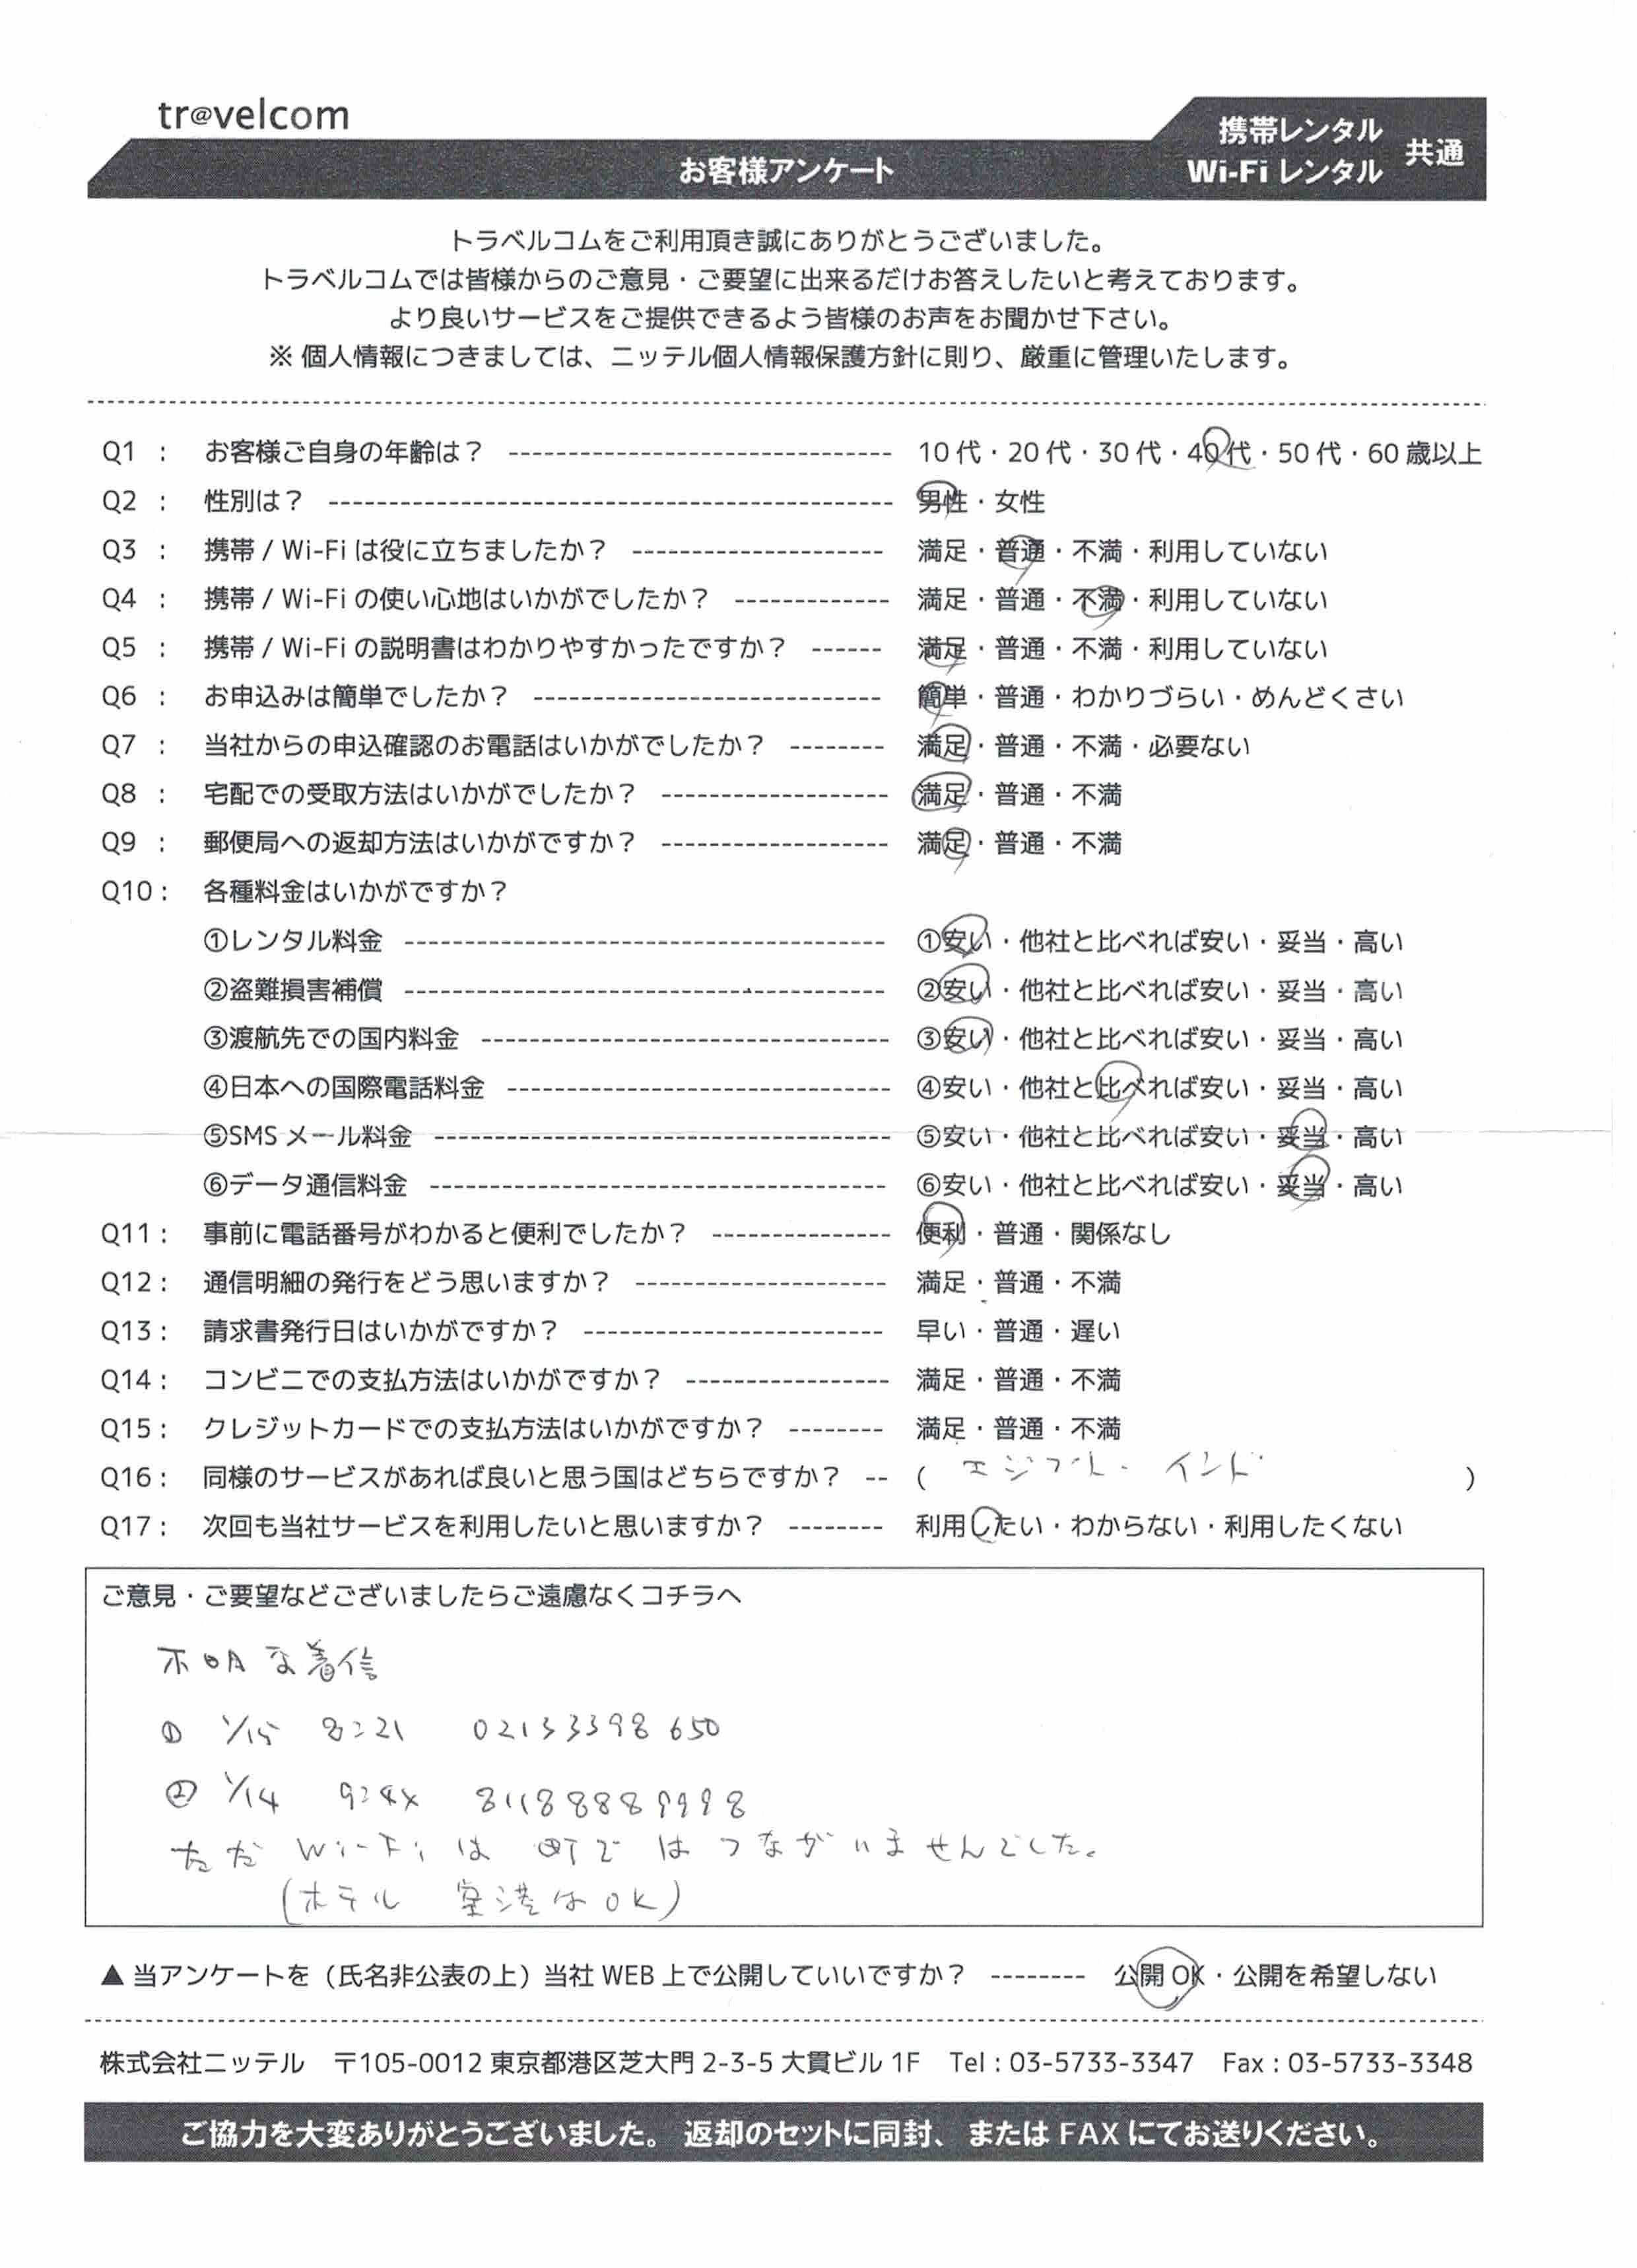 tr@velcom
お客様アンケート
携帯レンタル
Wi-Fi レンタル
共通
トラベルコムをご利用頂き誠にありがとうございました。
トラベルコムでは皆様からのご意見・ご要望に出来るだけお答えしたいと考えております。
より良いサービスをご提供できるよう皆様のお声をお聞かせ下さい。
※ 個人情報につきましては、ニッテル個人情報保護方針に則り、厳重に管理いたします。
Q1 : お客様ご自身の年齢は？ 10 代・20 代・30 代・40 代・50 代・60 歳以上
Q2 : 性別は？ 男性・女性
Q3 : 携帯 / Wi-Fi は役に立ちましたか？ 満足・普通・不満・利用していない
Q4 : 携帯 / Wi-Fi の使い心地はいかがでしたか？ 満足・普通・不満・利用していない
Q5 : 携帯 / Wi-Fi の説明書はわかりやすかったですか？ 満足・普通・不満・利用していない
Q6 : お申込みは簡単でしたか？ 簡単・普通・わかりづらい・めんどくさい
Q7 : 当社からの申込確認のお電話はいかがでしたか？ 満足・普通・不満・必要ない
Q8 : 宅配での受取方法はいかがでしたか？ 満足・普通・不満
Q9 : 郵便局への返却方法はいかがですか？ 満足・普通・不満
Q10 : 各種料金はいかがですか？
①レンタル料金 ①安い・他社と比べれば安い・妥当・高い
②盗難損害補償 ②安い・他社と比べれば安い・妥当・高い
③渡航先での国内料金 ③安い・他社と比べれば安い・妥当・高い
④日本への国際電話料金 ④安い・他社と比べれば安い・妥当・高い
⑤SMS メール料金 ⑤安い・他社と比べれば安い・妥当・高い
⑥データ通信料金 ⑥安い・他社と比べれば安い・妥当・高い
Q11 : 事前に電話番号がわかると便利でしたか？ 便利・普通・関係なし
Q12 : 通信明細の発行をどう思いますか？ 満足・普通・不満
Q13 : 請求書発行日はいかがですか？ 早い・普通・遅い
Q14 : コンビニでの支払方法はいかがですか？ 満足・普通・不満
Q15 : クレジットカードでの支払方法はいかがですか？ 満足・普通・不満
Q16 : 同様のサービスがあれば良いと思う国はどちらですか？ ( エジプト・インド )
Q17 : 次回も当社サービスを利用したいと思いますか？ 利用したい・わからない・利用したくない
ご意見・ご要望などございましたらご遠慮なくコチラへ
不明な着信
① 1/15 8:21 02133398650
② 1/14 9:4x 81188889998
ただ Wi-Fi は 町では つながいませんでした。
(ホテル 空港は OK)
▲ 当アンケートを（氏名非公表の上）当社 WEB 上で公開していいですか？ 公開 OK・公開を希望しない
株式会社ニッテル 〒105-0012 東京都港区芝大門 2-3-5 大貫ビル 1F Tel : 03-5733-3347 Fax : 03-5733-3348
ご協力を大変ありがとうございました。 返却のセットに同封、またはFAXにてお送りください。